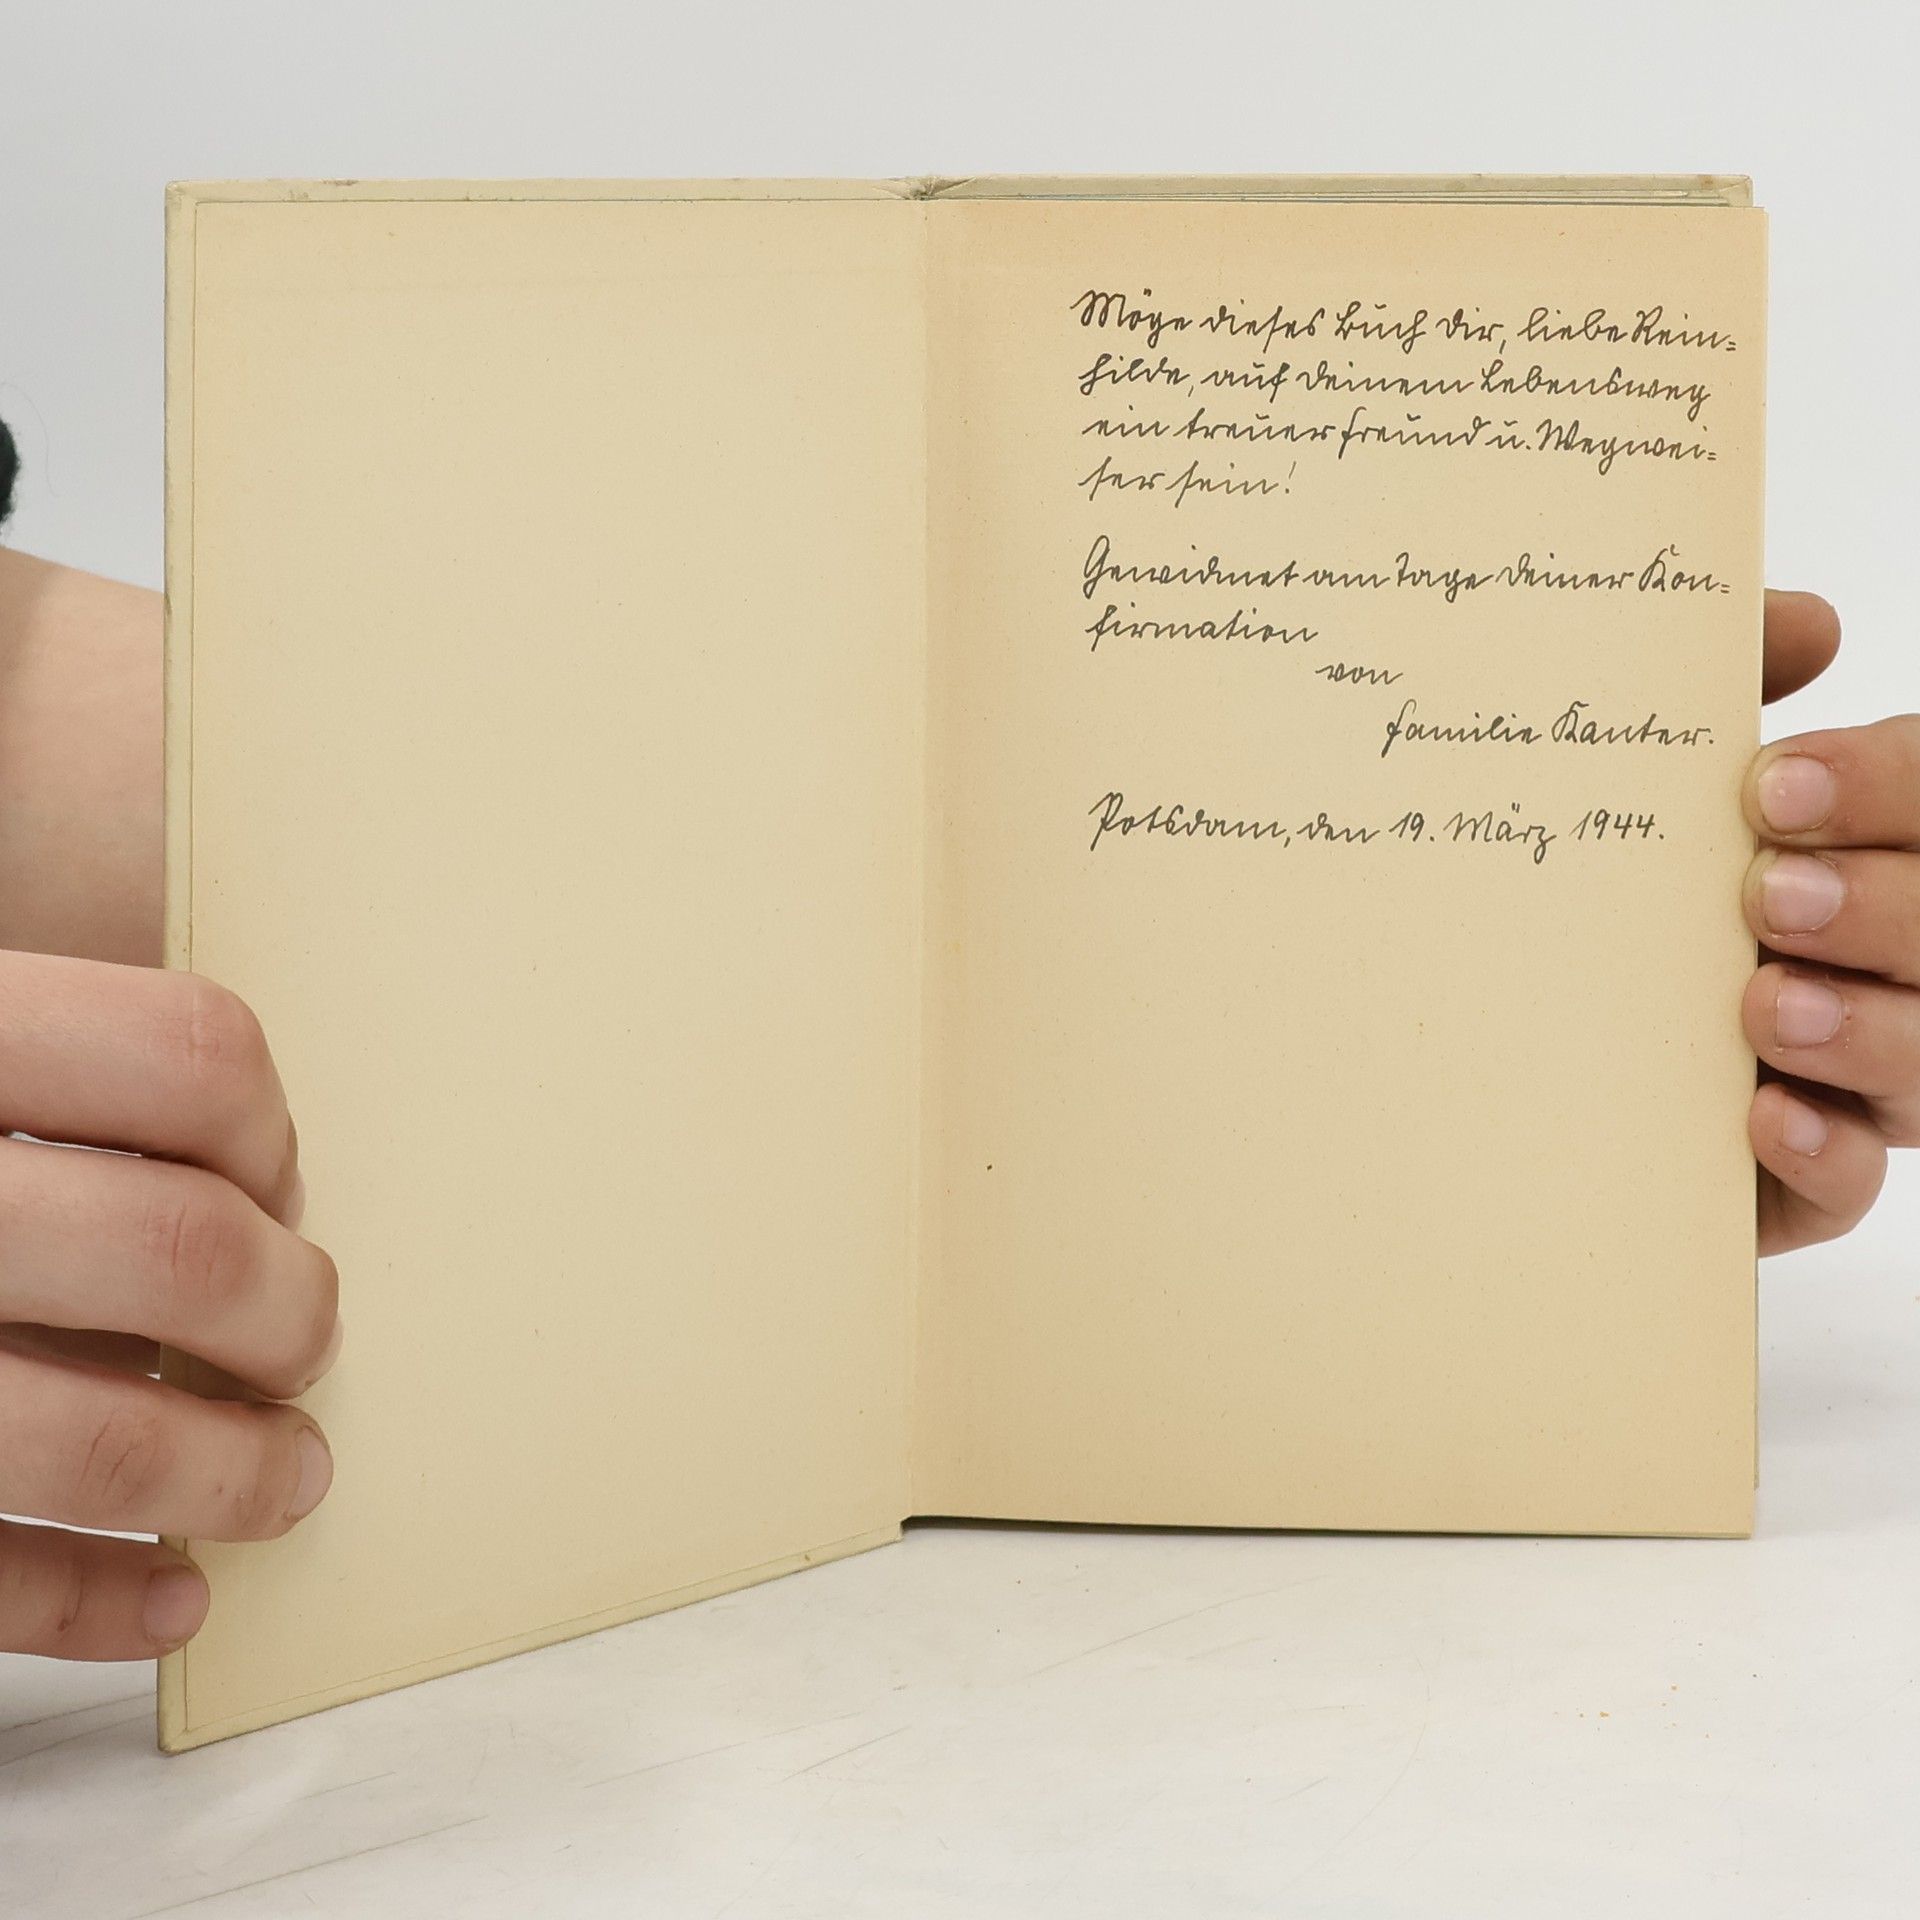 Möge dieses Buch Dir, liebe Rein=
hilde, auf Deinem Lebensweg
ein treuer Freund u. Wegwei=
ser sein!
Gewidmet am Tage Deiner Kon=
firmation
von
Familie Kanter.
Potsdam, den 19. März 1944.